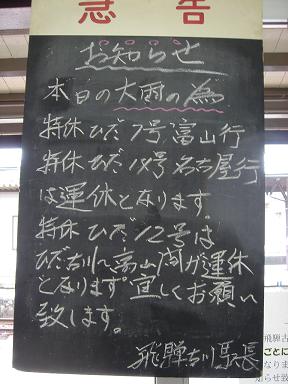 急告
お知らせ
本日の大雨の為
特休ひだ7号富山行
特休ひだ18号名古屋行
は運休となります。
特休ひだ12号は
ひだ古川〜富山間が運休
となります。宜しくお願い
致します。
飛騨古川駅長
飛騨古
ごとに
なりま
知らせ致